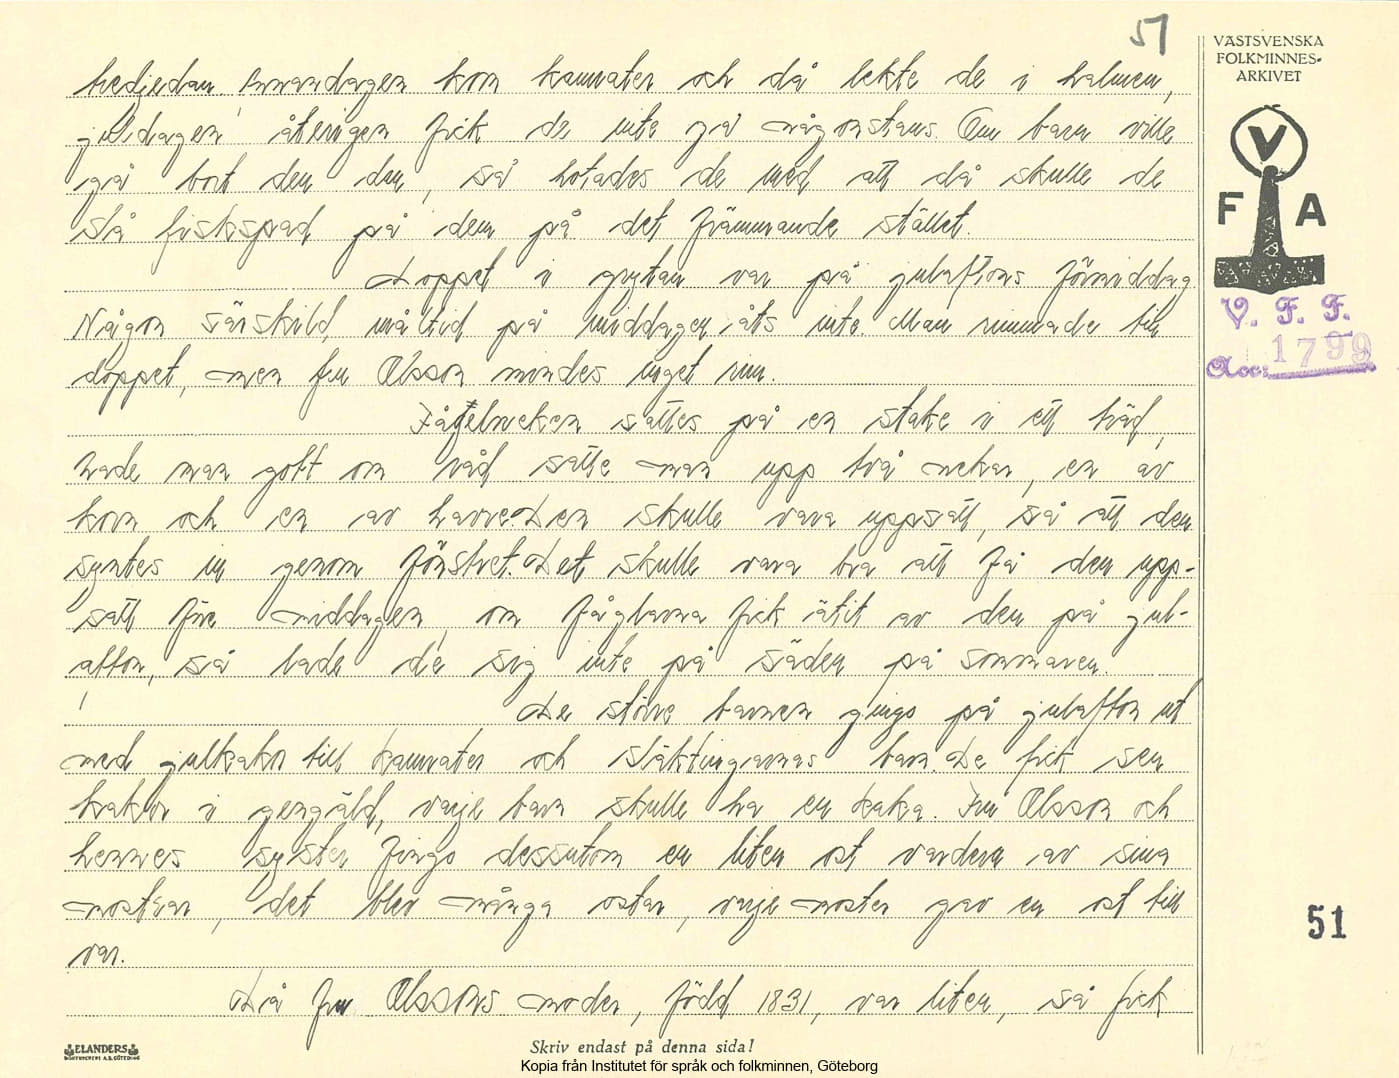 51
VÄSTSVENSKA
FOLKMINNES-
ARKIVET
V
F A
V. F. F.
Acc: 1799
tredjedan. Annandagen kom kamrater och då lekte de i halmen,
juldagen återigen fick de inte gå någonstans. Om barn ville
gå bort den dan, så hotades de med att då skulle de
slå fiskspad på dem på det främmande stället.
Doppet i grytan var på julaftons förmiddag
Någon särskild måltid på middagen åts inte. Man rimmade till
doppet, men fru Olsson mindes inget rim.
Fågelneken sattes på en stake i ett träd,
hade man gott om råd satte man upp två nekar, en av
korn och en av havre. Den skulle vara uppsatt, så att den
syntes in genom fönstret. Det skulle vara bra att få den upp-
satt före middagen, om fåglarna fick ätit av den på jul-
afton, så lade de sig inte på säden på sommaren.
De större barnen gings på julafton ut
med julkakor till kamrater och släktingarnas barn. De fick sen
kakor i gengäld, varje barn skulle ha en kaka. Fru Olsson och
hennes syster fingo dessutom en liten ost vardera av sina
mostrar, det blev många ostar, varje moster gav en ost till
var.
Då fru Olssons moder, född 1831, var liten, så fick
51
ELANDERS
BOKTRYCKERI A.B. GÖTEBORG
Skriv endast på denna sida!
Kopia från Institutet för språk och folkminnen, Göteborg